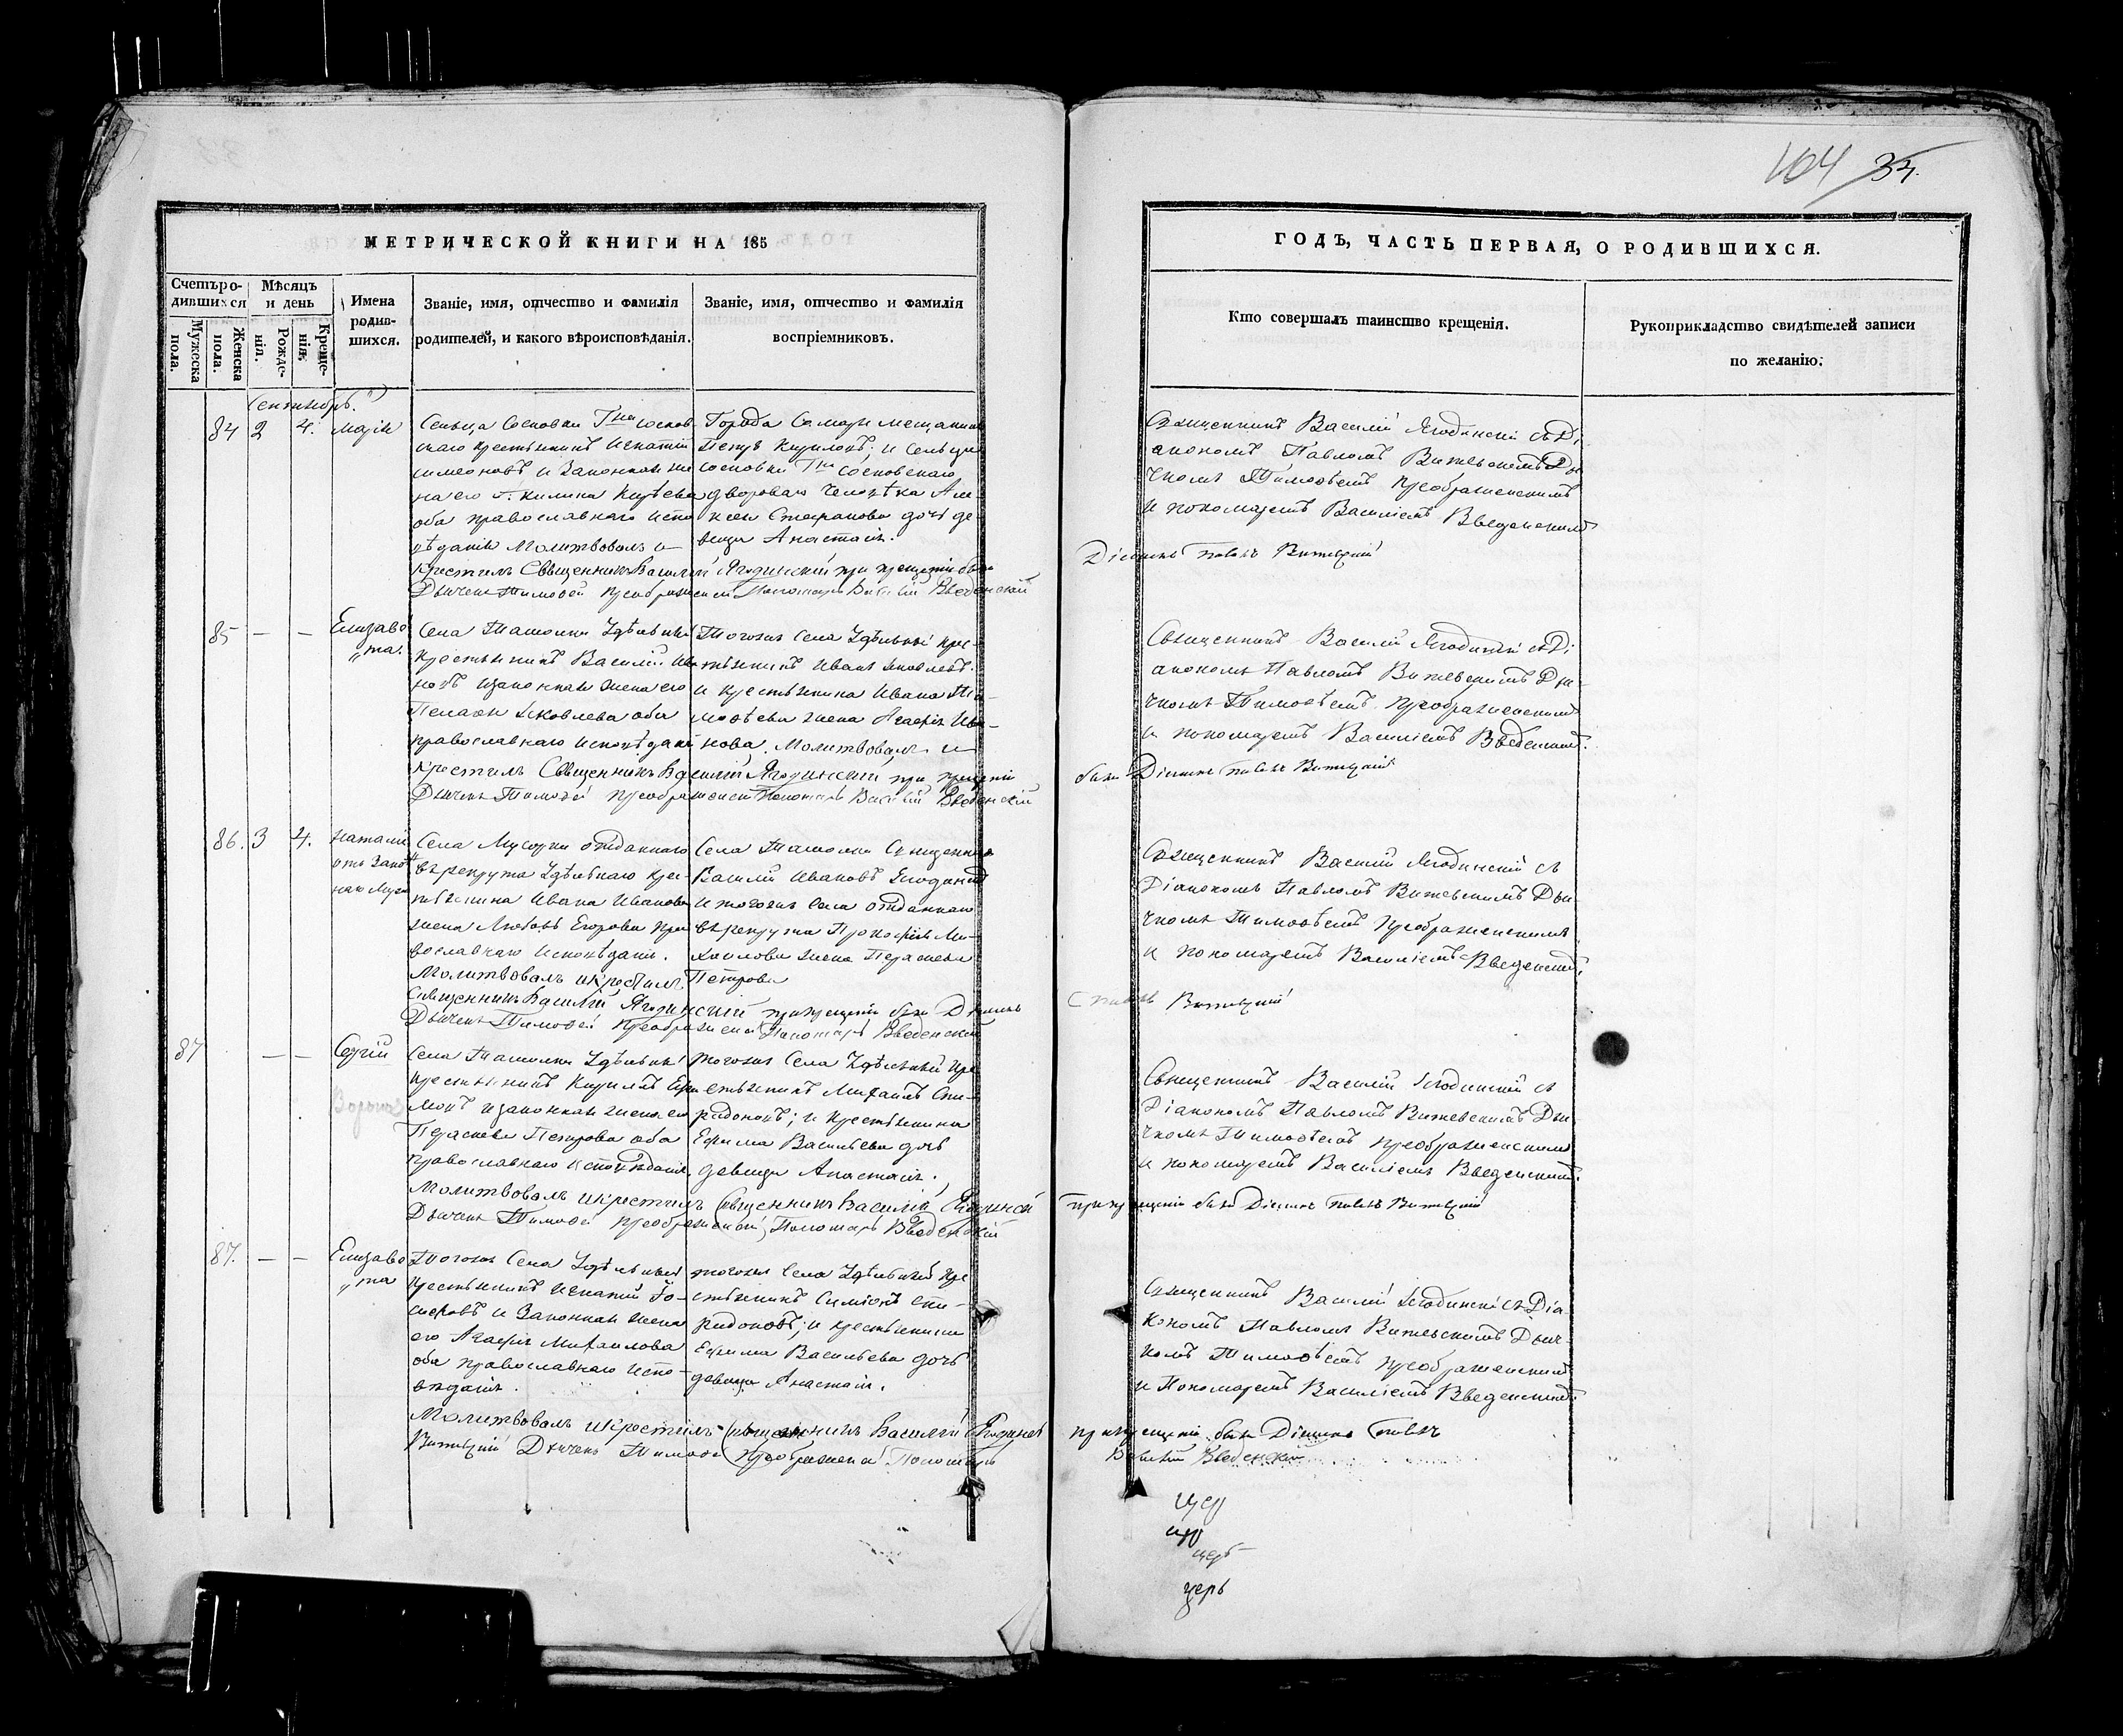 104 34.
МЕТРИЧЕСКОЙ КНИГИ НА 185
ГОДЪ, ЧАСТЬ ПЕРВАЯ, О РОДИВШИХСЯ.
Счетъ ро-
дившихся
Мужеска
пола.
Женска
пола.
Мѣсяцъ
и день
Рожде-
нія.
Креще-
нія.
Имена
родив-
шихся.
Званіе, имя, отчество и фамилія
родителей, и какого вѣроисповѣданія.
Званіе, имя, отчество и фамилія
воспріемниковъ.
Кто совершалъ таинство крещенія.
Рукоприкладство свидѣтелей записи
по желанію.
Сентябрь.
84 2 4. Марія
Сельца Сосновки Г-на Соснов
скаго крестьянинъ Игнатій
Симеоновъ и Законная же
на его Акилина
оба православнаго испо
вѣданія Молитвовалъ и
крестилъ Священникъ Василій Ягодинскій при крещеніи были
Дьячекъ Тимофей Преображенскій Пономарь Василій Введенскій
Города Самары мещанинъ
Петръ Кириловъ; и Сельца
Сосновки Г-на Сосновскаго
двороваго человѣка Але
ксея Стефанова дочь де
вица Анастасія.
Священникъ Василій Ягодинскій съ Ді
акономъ Павломъ Витевскимъ Дья
чкомъ Тимофеемъ Преображенскимъ
и пономаремъ Василіемъ Введенскимъ
Діаконъ Павелъ Витевскій
85 — — Елизаве
„та.
Села Ташолки Удѣльный
крестьянинъ Василій Ива
новъ и законная жена его
Пелагея Яковлева оба
православнаго исповѣданія
крестилъ Священникъ Василій Ягодинскій, при крещеніи
Дьячекъ Тимофей Преображенскій Пономарь Василій Введенскій
Тогожъ Села Удѣльный кре-
стьянинъ Иванъ Яковлевъ.
и крестьянина Ивана Ти-
мофѣева жена Агафія Ива-
нова. Молитвовалъ и
Священникъ Василій Ягодинскій съ Ді
акономъ Павломъ Витевскимъ Дья-
чкомъ Тимофѣемъ Преображенскимъ
и пономаремъ Василіемъ Введенскимъ.
были Діаконъ Павелъ Витевскій
86. 3 4. Наталія
отъ Закон
наго Мужа
Села Мусорки отданнаго
въ рекрута Удѣльнаго кре-
стьянина Ивана Иванова
жена Любовь Егорова пра
вославнаго исповѣданія.
Молитвовалъ и крестилъ
Священникъ Василій Ягодинскій при крещеніи были Діаконъ
Дьячекъ Тимофей Преображенскій Пономарь Введенскій
Села Ташолки Священникъ
Василій Ивановъ Ягодинскій
и тогожъ Села отданнаго
въ рекрута Прокофія Ми-
хаилова жена Параскева
Петрова
Священникъ Василій Ягодинскій съ
Діакономъ Павломъ Витевскимъ Дья-
чкомъ Тимофѣемъ Преображенскимъ
и пономаремъ Василіемъ Введенскимъ.
Павелъ Витевскій
87 — — Сергій
Села Ташолки Удѣльный
крестьянинъ Кирилъ
и законная жена его
Параскева Петрова оба
православнаго исповѣданія
Молитвовалъ и крестилъ Священникъ Василій Ягодинскій
Дьячекъ Тимофей Преображенскій, Пономарь Введенскій
тогожъ Села Удѣльный кре
стьянинъ Михаилъ Спи-
ридоновъ; и крестьянина
Ефима Васильева дочь
девица Анастасія.
Священникъ Василій Ягодинскій съ
Діакономъ Павломъ Витевскимъ Дья
чкомъ Тимофѣемъ Преображенскимъ
и пономаремъ Василіемъ Введенскимъ.
при крещеніи были Діаконъ Павелъ Витевскій
87. — — Елизаве
„та
Тогожъ Села Удѣльный
крестьянинъ Игнатій Іо-
сифовъ и Законная жена
его Агафія Михаилова
оба православнаго испо-
вѣданія.
Молитвовалъ и крестилъ Священникъ Василій Ягодинскій
Витевскій Дьячекъ Тимофей Преображенскій Пономарь
тогожъ Села Удѣльный кре
стьянинъ Симіонъ Спи-
ридоновъ; и крестьянина
Ефима Васильева дочь
девица Анастасія.
Священникъ Василій Ягодинскій съ Діа
кономъ Павломъ Витевскимъ Дьяч-
комъ Тимофѣемъ Преображенскимъ
и Пономаремъ Василіемъ Введенскимъ
при крещеніи были Діаконъ Павелъ
Василій Введенскій
церь